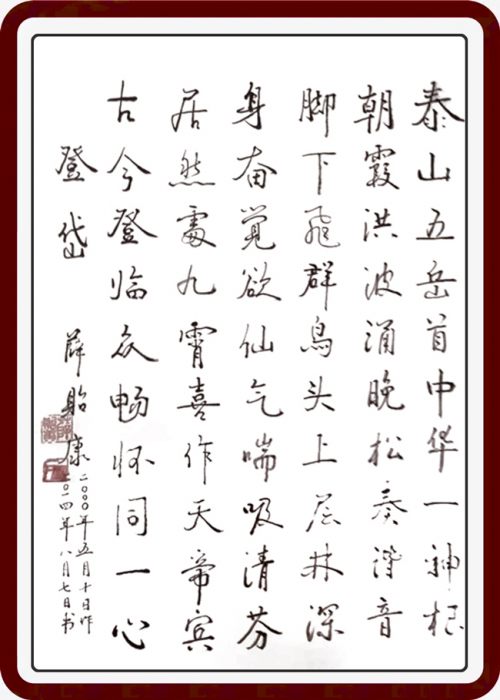 泰山五岳首中华一神根
朝霞洪波涌晚松奏谐音
脚下飞群鸟头上层林深
身奋觉欲仙气喘吸清芬
居然處九霄喜作天帝宾
古今登临众畅怀同一心
登岱 薛贻康
二〇〇〇年五月十日作
二〇一四年八月七日书